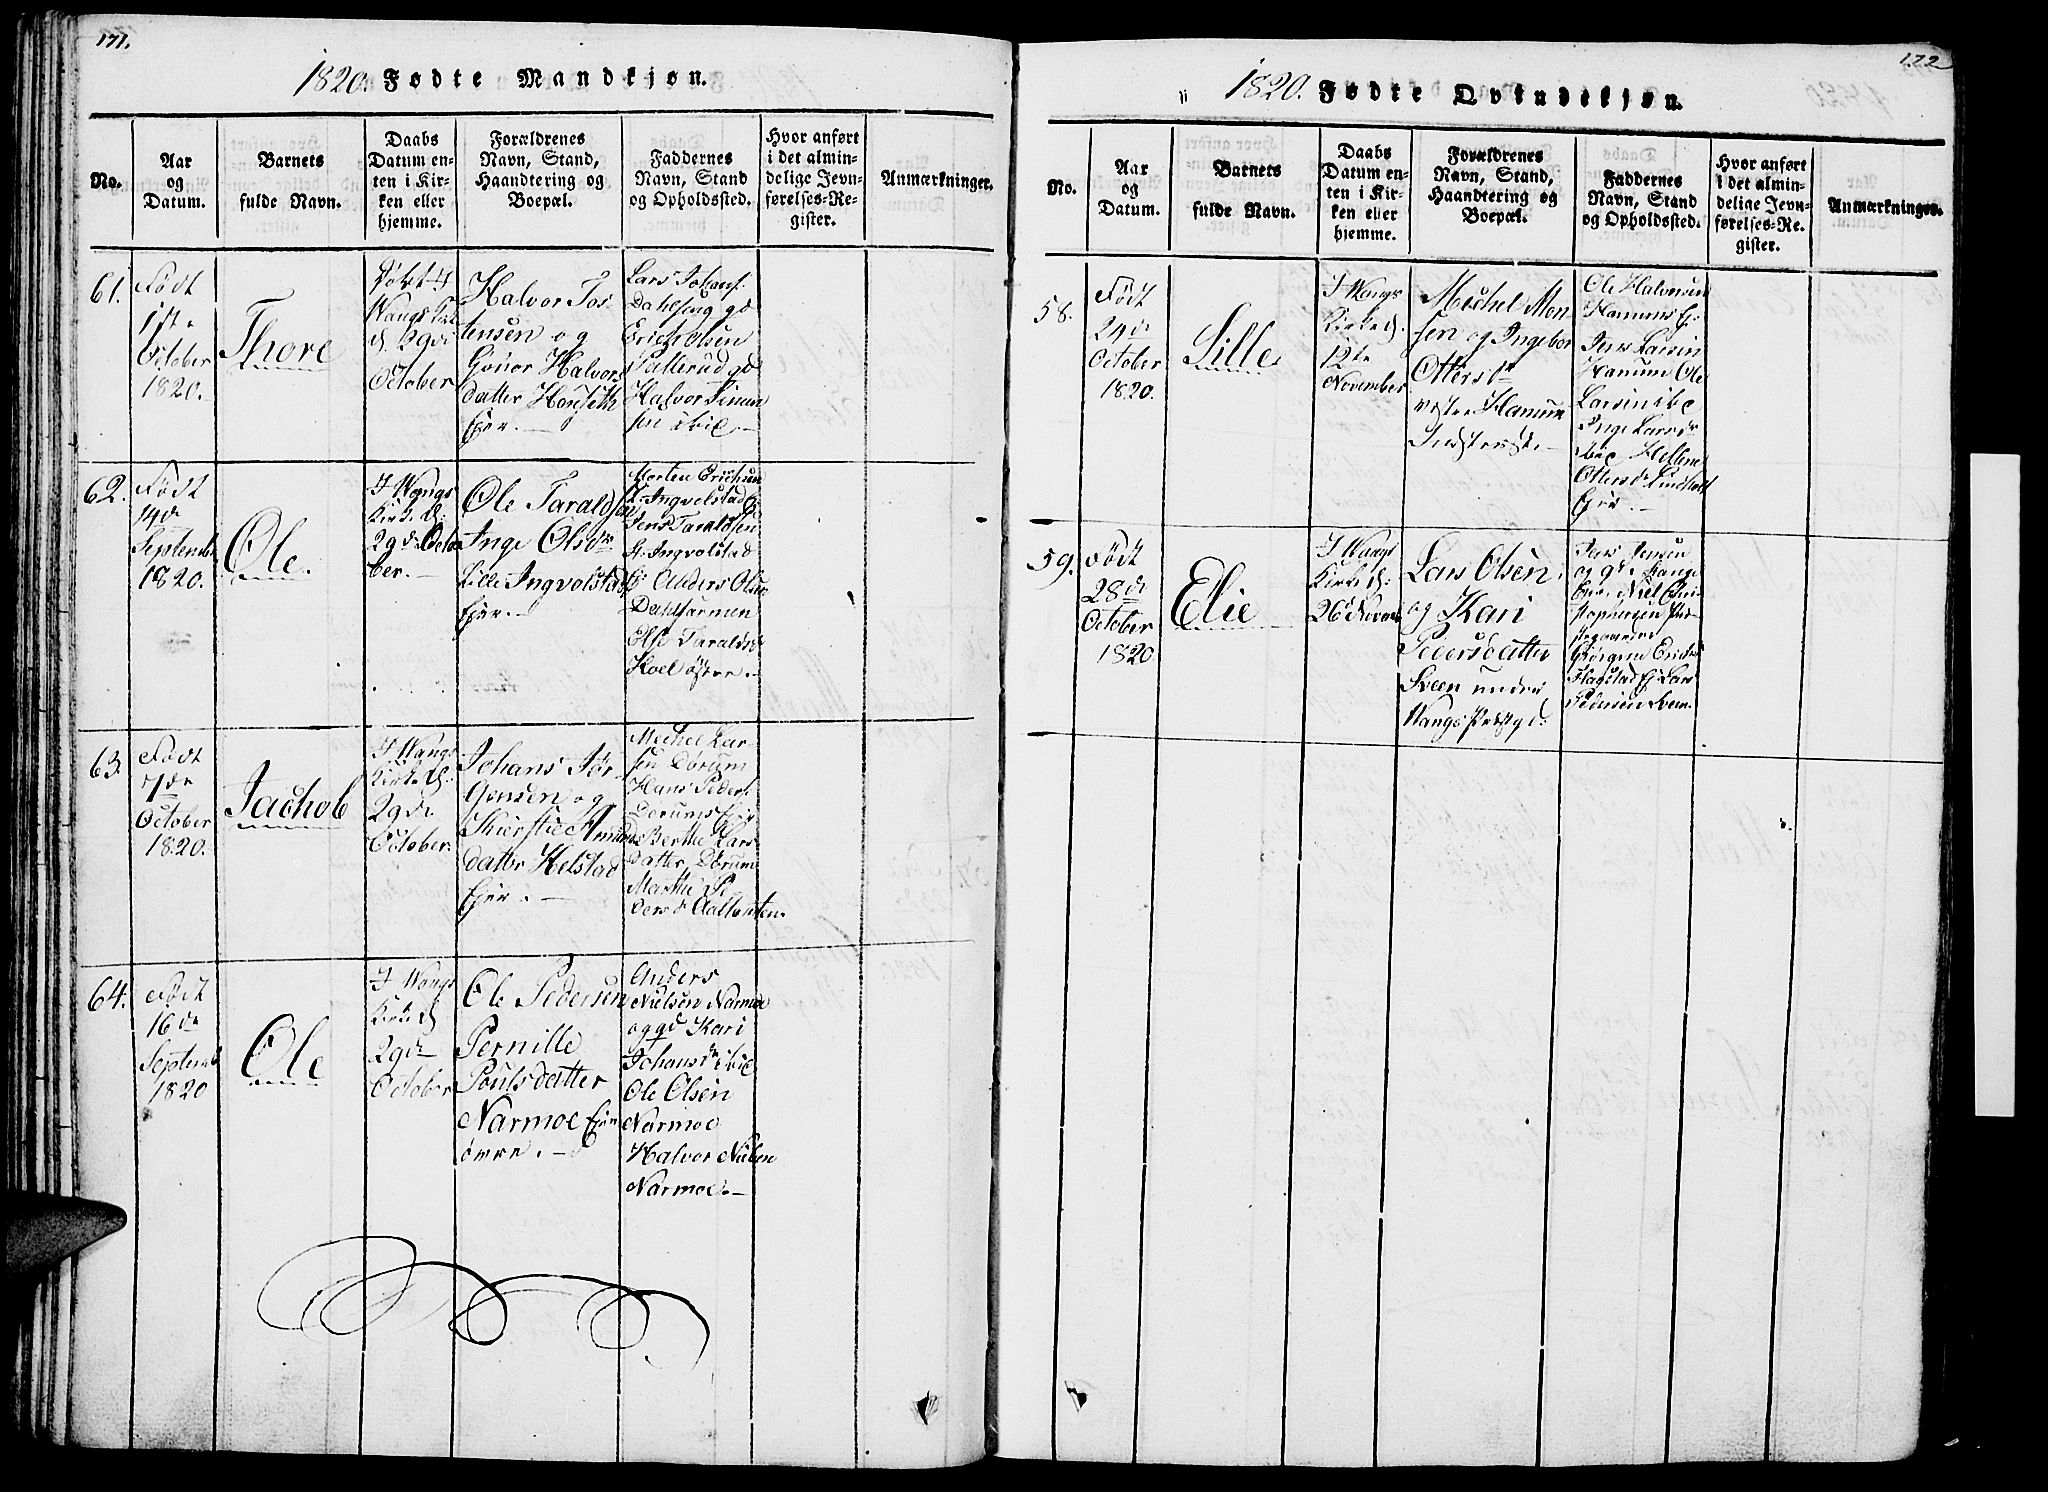 171.
1820. Fødte Mandkjøn.
No.
Aar
og
Datum.
Barnets
fulde Navn.
Daabs
Datum en-
ten i Kir-
ken eller
hjemme.
Forældrenes
Navn, Stand,
Haandtering og
Boepæl.
Faddernes
Navn, Stand
og Opholdssted.
Hvor anført
i det almin-
delige Jevn-
førelses-Re-
gister.
Anmærkninger.
61.
Født
1ste
October
1820.
Thore
Wangs
d. 29de
October
Halvor Tos-
tensen og
Halvors
datter
Ejer.
Lars Johans.
gd
Erich Olsen
gd
Halvor Simen
sen ibid.
62.
Født
14de
Septembr
1820.
Ole.
I Wangs
Kirke d:
29de Octo
ber.
Ole Taraldsen
Inge Olsdr
Lille Ingvolstad
Ejer.
Morten Erichsen
L. Ingvolstad
Jens Taraldsen
St. Ingvolstad
Ej Anders Olsen
Else Taraldsd
Hoel østre.
63.
Født
7de
October
1820.
Jachob
I Wangs
Kirke d:
29de
October.
Johans Jør-
gensen og
Kierstie Amunds
datter Helstad
Ejer.
Mechel Lar-
sen Dørum
Hans Peders.
Dørums Ejer
Berthe Lars
datter Dørum
Marthe Pe
ders d
64.
Født
16de
Septemb
1820
Ole
I Wangs
Kirke d
29de
October
Ole Pedersen
Pernille
Poulsdatter
Narmoe Ejer
Anders
Nielsen Narmoe
og gd Kari
Johansdr ibid
Ole Olsen
Narmoe
Halvor Nielsen
Narmoe.
172
1820. Fødte Qvindekjøn.
No.
Aar
og
Datum.
Barnets
fulde Navn.
Daabs
Datum en-
ten i Kir-
ken eller
hjemme.
Forældrenes
Navn, Stand,
Haandtering og
Boepæl.
Faddernes
Navn, Stand
og Opholdssted.
Hvor anført
i det almin-
delige Jevn-
førelses-Re-
gister.
Anmærkninger.
58.
Født
29de
October
1820.
Lille
I Wangs
Kirke d.
12te
November
Mechel Mon
sen og Ingebor
Ottersdr
Hanum
Ole Halvorsen
Hanums Ej.
Jens Larsen
Hanum Ole
Larsen ibd
Inge Larsdr
ibid Hellene
Ottersd
Ejer.
59.
Født
28de
October
1820
Elie
I Wangs
Kirke d:
26d Novem
Lars Olsen
og Kari
Pedersdatter
Sveen under
Wangs Præstgd.
Jens Jensen
og gd.
Niel Chri
stophersen
Jørgine Erichs
Hagstad Ej Lars
Pedersen Sveen.